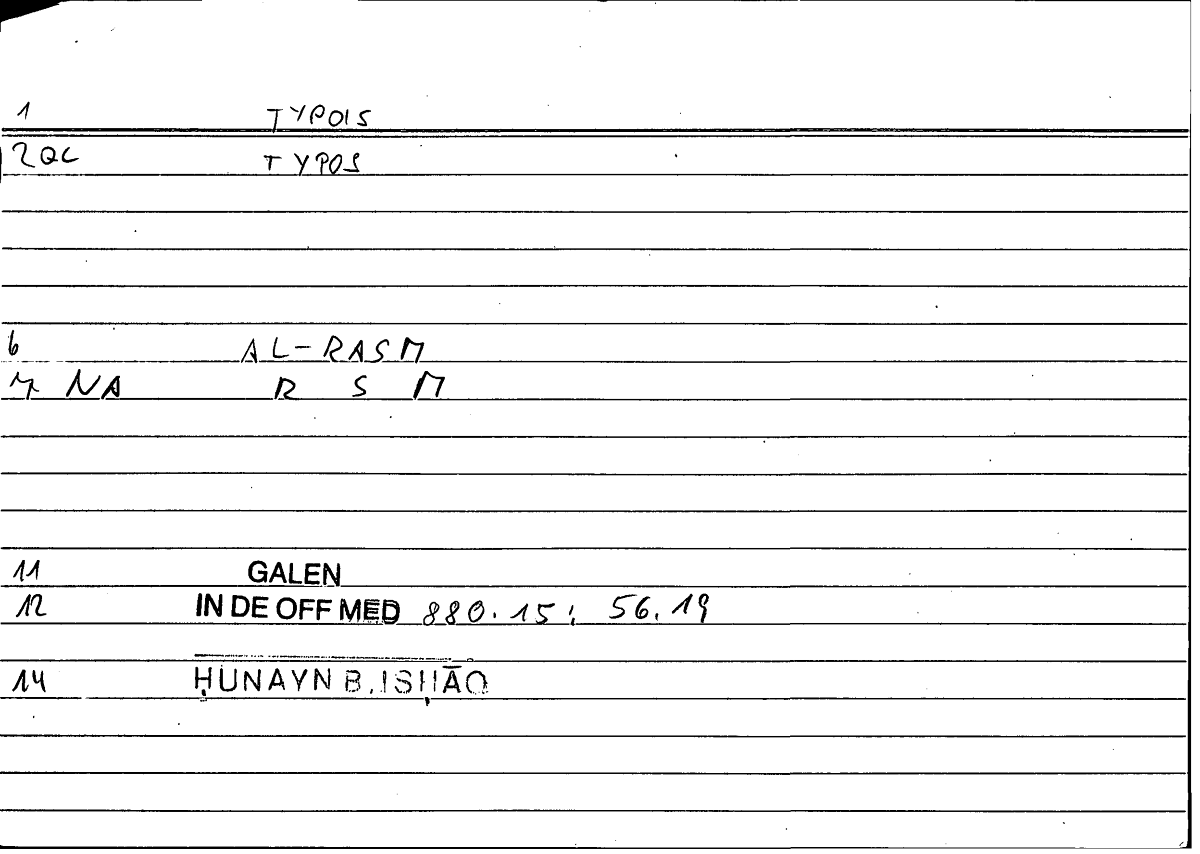 1 TYPOIS
2QC TYPOS
6 AL-RASM
7 NA R S M
11 GALEN
12 IN DE OFF MED 880.15; 56.19
14 ḤUNAYN B. ISḤĀQ